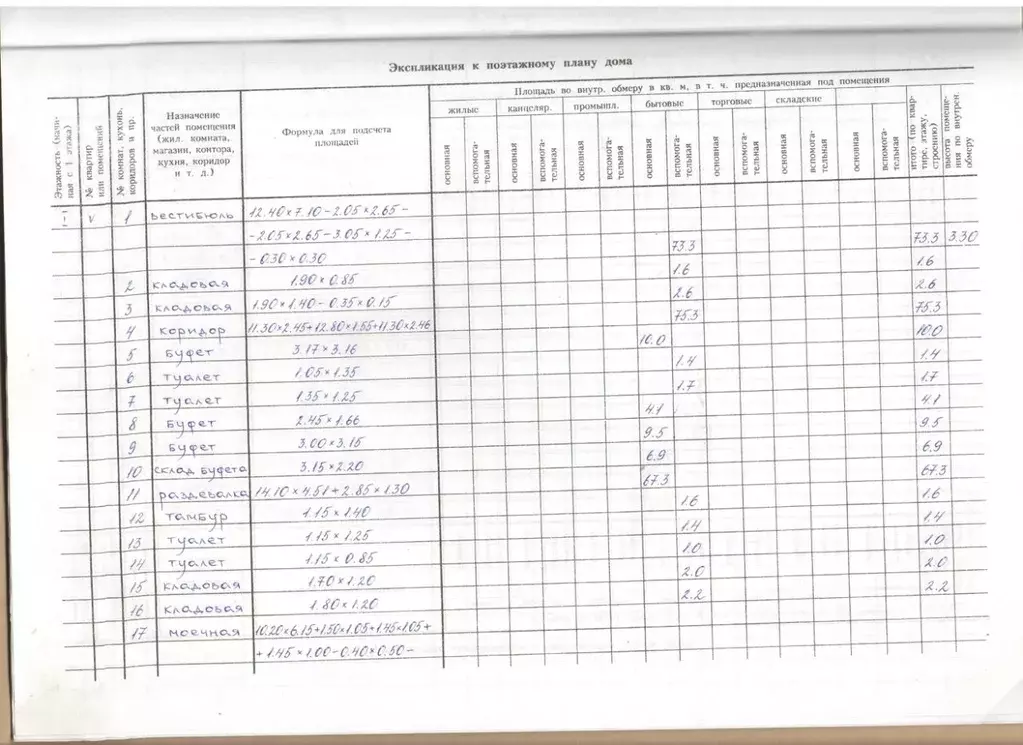 Экспликация к поэтажному плану дома
Этажность (начиная с 1 этажа)
№ квартир или помещений
№ комнат, кухонь, коридоров и пр.
Назначение частей помещения (жил. комната, магазин, контора, кухня, коридор и т. д.)
Формула для подсчета площадей
Площадь во внутр. обмеру в кв. м, в т. ч. предназначенная под помещения
жилые канцеляр. промышл. бытовые торговые складские
основная вспомогательная основная вспомогательная основная вспомогательная основная вспомогательная основная вспомогательная основная вспомогательная основная вспомогательная
итого (по квартире, этажу, строению)
высота помещения по внутрен. обмеру
V 1 вестибюль 12.40×7.10-2.05×2.65-
-2.05×2.65-3.05×1.25-
-0.30×0.30 73.3 73.3 3.30
2 кладовая 1.90×0.85 1.6 1.6
3 кладовая 1.90×1.40-0.35×0.15 2.6 2.6
4 коридор 11.30×2.45+12.80×1.55+11.30×2.46 75.3 75.3
5 буфет 3.17×3.16 10.0 10.0
6 туалет 1.05×1.35 1.4 1.4
7 туалет 1.35×1.25 1.7 1.7
8 буфет 2.45×1.66 4.1 4.1
9 буфет 3.00×3.15 9.5 9.5
10 склад буфета 3.15×2.20 6.9 6.9
11 раздевалка 14.10×4.51+2.85×1.30 67.3 67.3
12 тамбур 1.15×1.40 1.6 1.6
13 туалет 1.15×1.25 1.4 1.4
14 туалет 1.15×0.85 1.0 1.0
15 кладовая 1.70×1.20 2.0 2.0
16 кладовая 1.80×1.20 2.2 2.2
17 моечная 10.20×6.15+1.50×1.05+1.45×1.05+
+1.45×1.00-0.40×0.50-